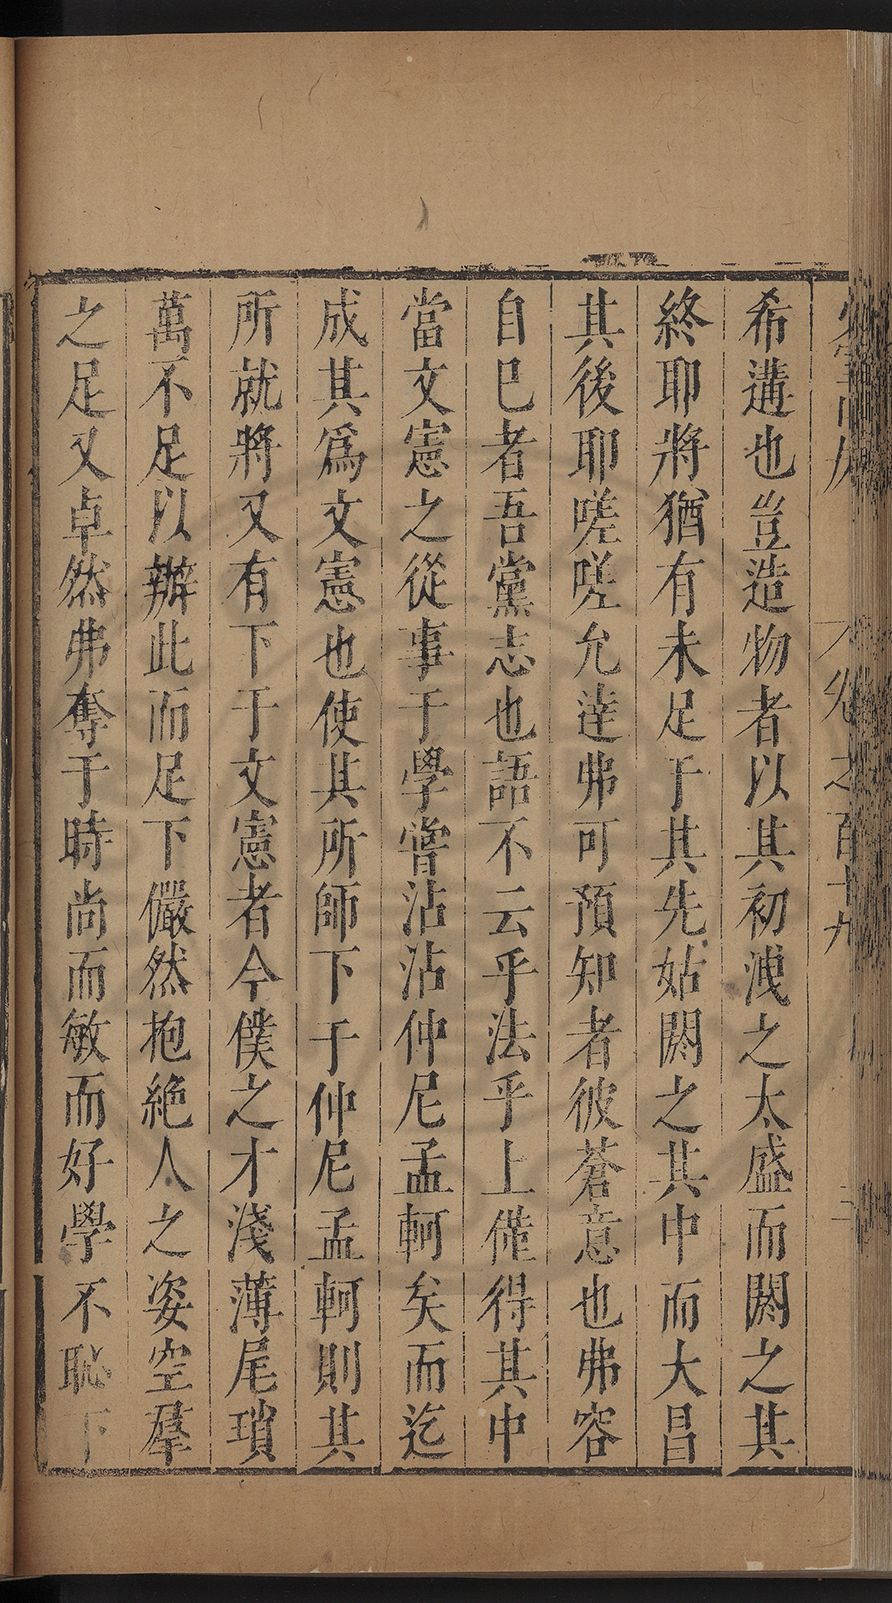 卷之百十九
希遘也豈造物者以其初洩之太盛而閼之其
終耶將猶有未足于其先姑閼之其中而大昌
其後耶嗟嗟允達弗可預知者彼蒼意也弗容
自已者吾黨志也語不云乎法乎上僅得其中
當文憲之從事于學嘗沾沾仲尼孟軻矣而迄
成其爲文憲也使其所師下于仲尼孟軻則其
所就將又有下于文憲者今僕之才淺薄尾瑣
萬不足以辦此而足下儼然抱絶人之姿空羣
之足又卓然弗奪于時尚而敏而好學不恥下